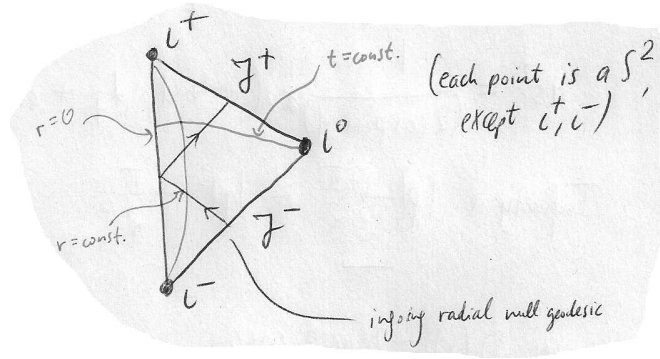 i⁺
𝒥⁺
t=const.
(each point is a S²,
except i⁺, i⁻)
r=0
i⁰
r=const.
𝒥⁻
i⁻
ingoing radial null geodesic